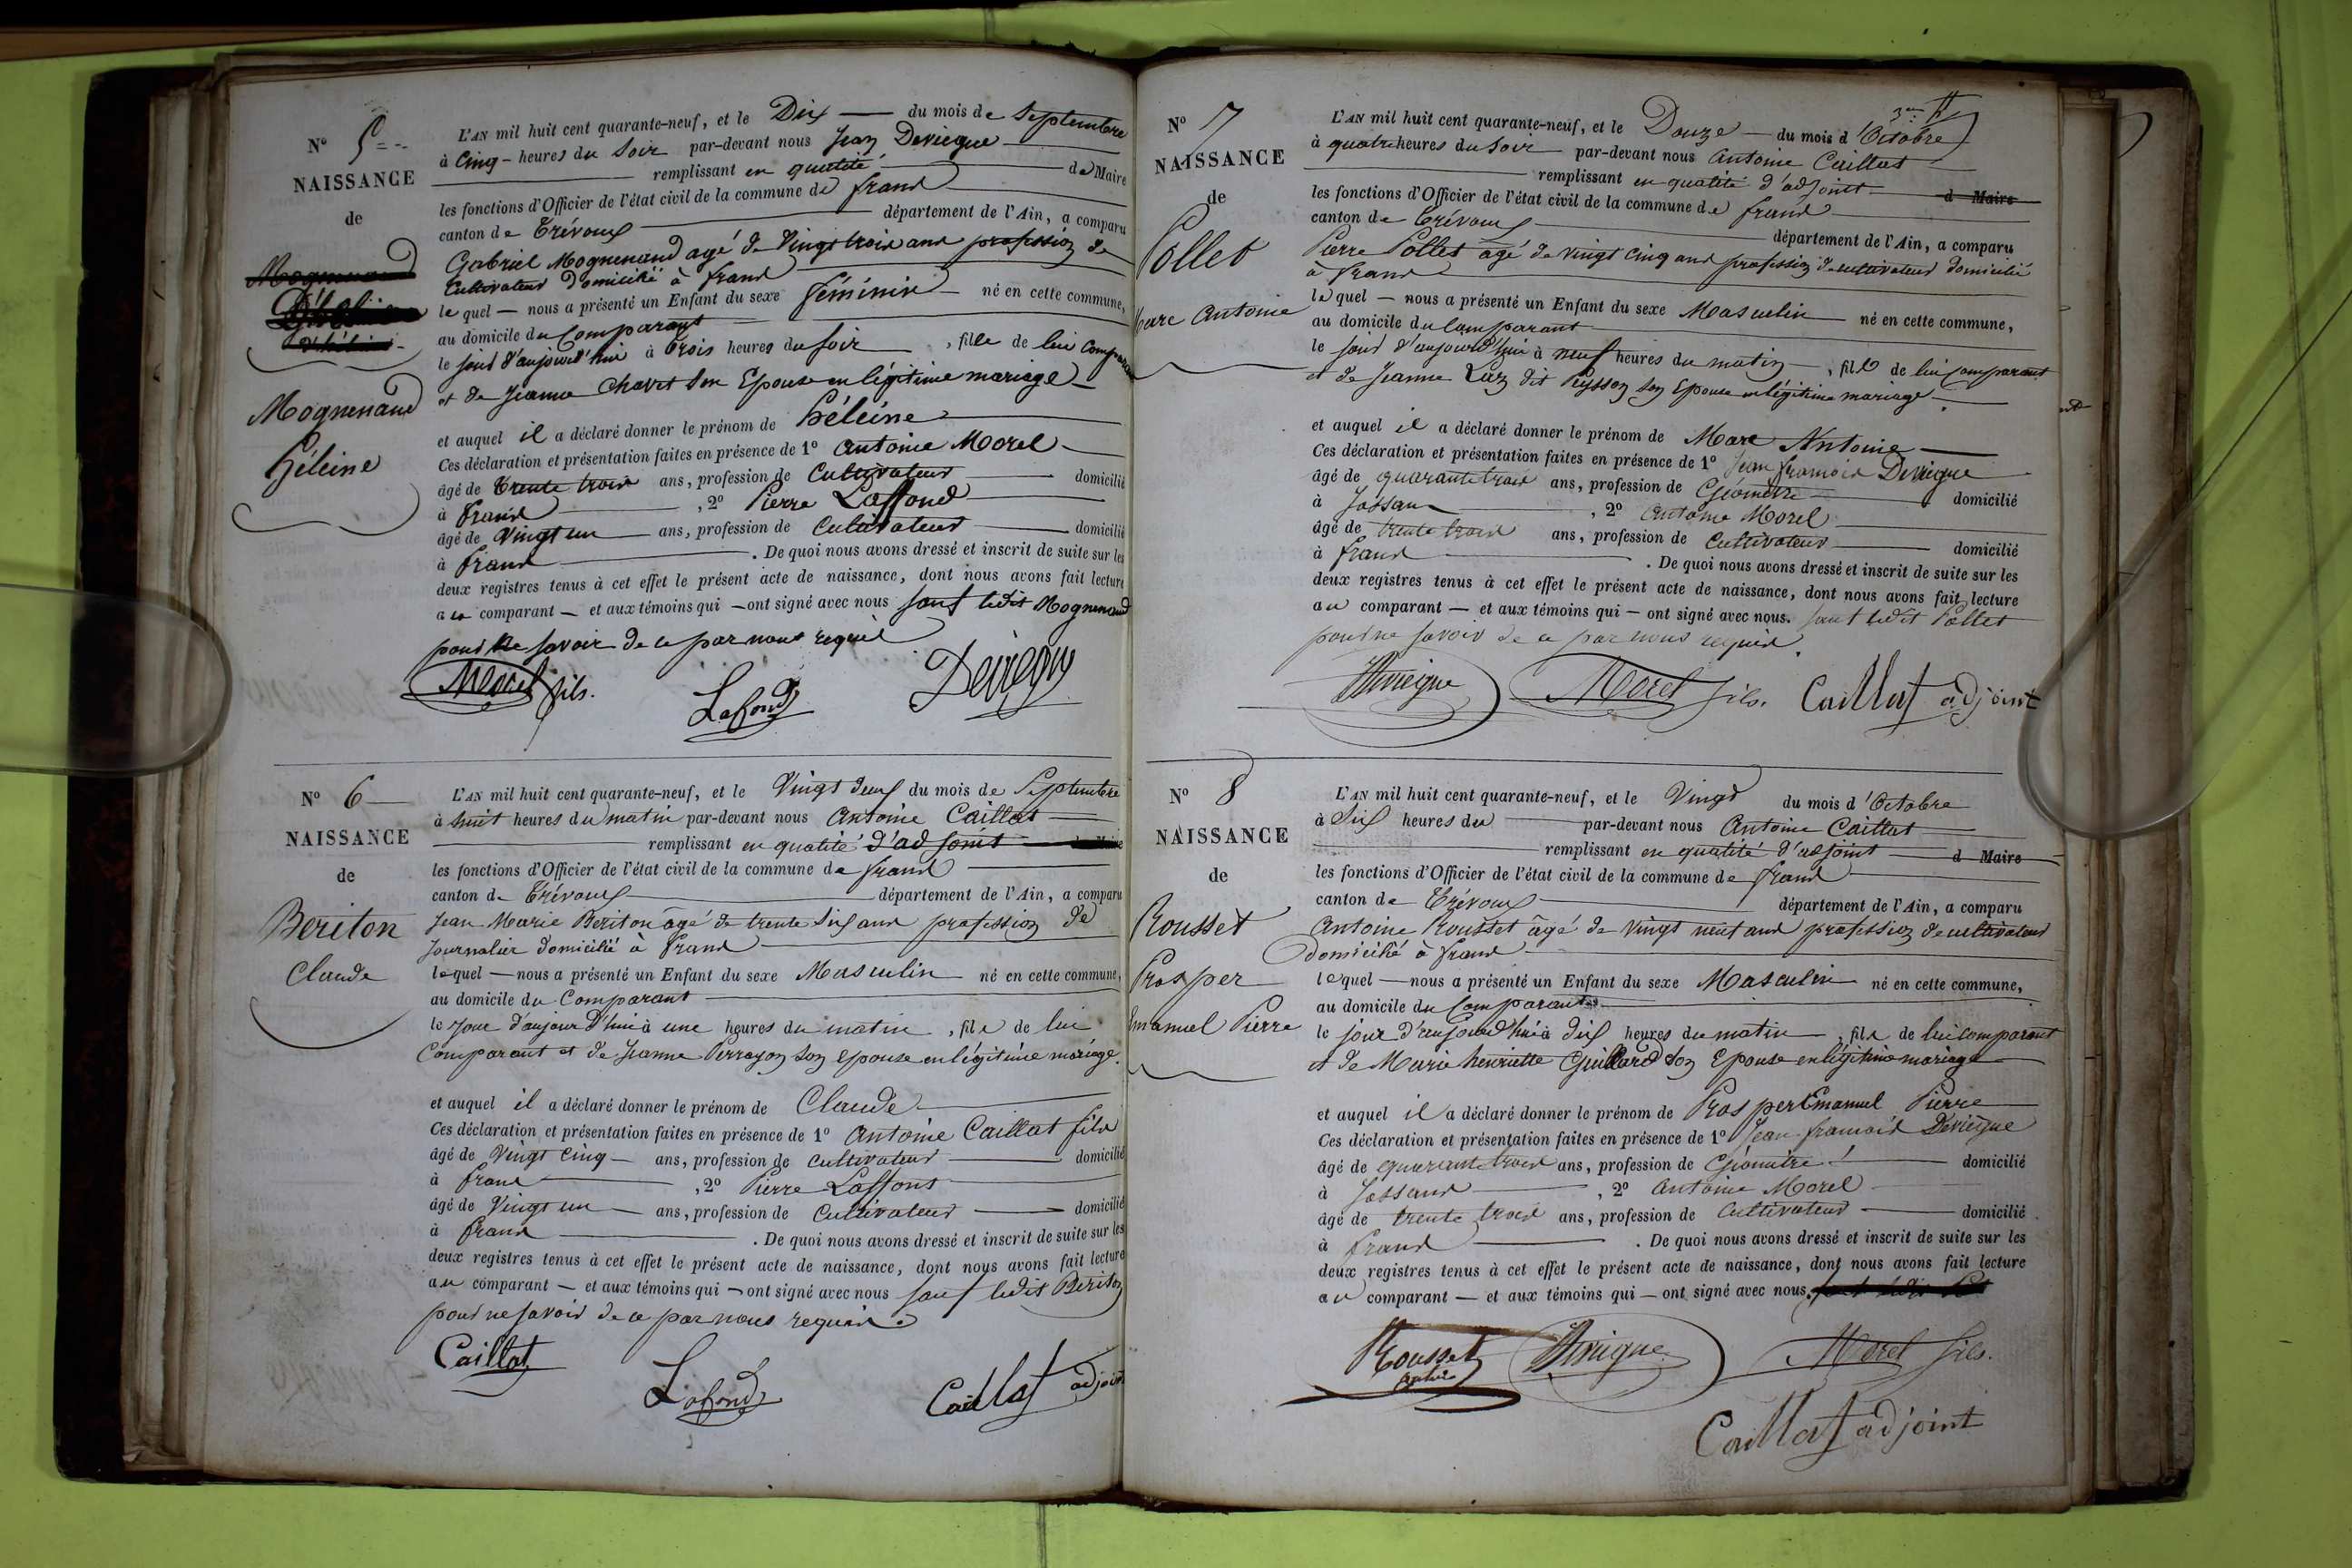 N° 5
NAISSANCE
de
Mognenand
Héleine
L'AN mil huit cent quarante-neuf, et le Dix du mois de Septembre
à Cinq heures du Soir par-devant nous Jean Deviegue
remplissant en qualité de Maire
les fonctions d'Officier de l'état civil de la commune de frand
canton de Trévoux département de l'Ain, a comparu
Gabriel Mognenand agé de Vingt trois ans profession de
Cultivateur Domicilié à frand
lequel — nous a présenté un Enfant du sexe féminin né en cette commune,
au domicile du Comparant
le jour d'aujourd'hui à trois heures du soir, fille de lui Comparant
et de Jeanne Chavet Son Epouse en légitime mariage
et auquel il a déclaré donner le prénom de héleine
Ces déclaration et présentation faites en présence de 1° Antoine Morel
âgé de trente trois ans, profession de Cultivateur domicilié
à frand, 2° Pierre Laffond
âgé de Vingt un ans, profession de Cultivateur domicilié
à frand. De quoi nous avons dressé et inscrit de suite sur les
deux registres tenus à cet effet le présent acte de naissance, dont nous avons fait lecture
au comparant — et aux témoins qui — ont signé avec nous sauf ledit Mognenand
pour ne savoir de ce par nous requis
Morel fils.
Lafond
N° 6
NAISSANCE
de
Beriton
Claude
L'AN mil huit cent quarante-neuf, et le Vingt deux du mois de Septembre
à huit heures du matin par-devant nous Antoine Caillat
remplissant en qualité d'adjoint
les fonctions d'Officier de l'état civil de la commune de frand
canton de Trévoux département de l'Ain, a comparu
Jean Marie Beriton âgé de trente six ans profession de
Journalier domicilié à frand
lequel — nous a présenté un Enfant du sexe Masculin né en cette commune,
au domicile du Comparant
le jour d'aujourd'hui à une heures du matin, fils de lui
Comparant et de Jeanne Perrayon Son Epouse en légitime mariage.
et auquel il a déclaré donner le prénom de Claude
Ces déclaration et présentation faites en présence de 1° Antoine Caillat fils
âgé de Vingt cinq ans, profession de Cultivateur domicilié
à frand, 2° Pierre Laffont
âgé de Vingt un ans, profession de Cultivateur domicilié
à frand. De quoi nous avons dressé et inscrit de suite sur les
deux registres tenus à cet effet le présent acte de naissance, dont nous avons fait lecture
au comparant — et aux témoins qui — ont signé avec nous sauf ledit Beriton
pour ne savoir de ce par nous requis.
Caillat
Lafond
Caillat adjoint
N° 7
NAISSANCE
de
Pollet
Marc Antoine
L'AN mil huit cent quarante-neuf, et le Douze du mois d'Octobre
à quatre heures du Soir par-devant nous Antoine Caillat
remplissant en qualité d'adjoint d Maire
les fonctions d'Officier de l'état civil de la commune de frand
canton de Trévoux département de l'Ain, a comparu
Pierre Pollet âgé de vingt cinq ans profession de cultivateur domicilié
à frand
lequel — nous a présenté un Enfant du sexe Masculin né en cette commune,
au domicile du Comparant
le jour d'aujourd'hui à neuf heures du matin, fils de lui Comparant
et de Jeanne dit Peysson Son Epouse en légitime mariage.
et auquel il a déclaré donner le prénom de Marc Antoine
Ces déclaration et présentation faites en présence de 1° Jean françois Deviegue
âgé de quarante trois ans, profession de Géomètre domicilié
à Jassans, 2° Antoine Morel
âgé de trente trois ans, profession de Cultivateur domicilié
à frand. De quoi nous avons dressé et inscrit de suite sur les
deux registres tenus à cet effet le présent acte de naissance, dont nous avons fait lecture
au comparant — et aux témoins qui — ont signé avec nous. sauf ledit Pollet
pour ne savoir de ce par nous requis.
Morel fils. Caillat adjoint
N° 8
NAISSANCE
de
Rousset
Prosper
Emanuel Pierre
L'AN mil huit cent quarante-neuf, et le Vingt du mois d'Octobre
à Six heures du par-devant nous Antoine Caillat
remplissant en qualité d'adjoint d Maire
les fonctions d'Officier de l'état civil de la commune de frand
canton de Trévoux département de l'Ain, a comparu
Antoine Rousset âgé de Vingt neuf ans profession de cultivateur
domicilié à frand
lequel — nous a présenté un Enfant du sexe Masculin né en cette commune,
au domicile du Comparant
le jour d'aujourd'hui à dix heures du matin, fils de lui comparant
et de Marie henriette Guillard Son Epouse en légitime mariage
et auquel il a déclaré donner le prénom de Prosper Emanuel Pierre
Ces déclaration et présentation faites en présence de 1° Jean françois Deviegue
âgé de quarante trois ans, profession de Géomètre domicilié
à Jassans, 2° Antoine Morel
âgé de trente trois ans, profession de Cultivateur domicilié
à frand. De quoi nous avons dressé et inscrit de suite sur les
deux registres tenus à cet effet le présent acte de naissance, dont nous avons fait lecture
au comparant — et aux témoins qui — ont signé avec nous.
Rousset Morel fils.
Caillat adjoint